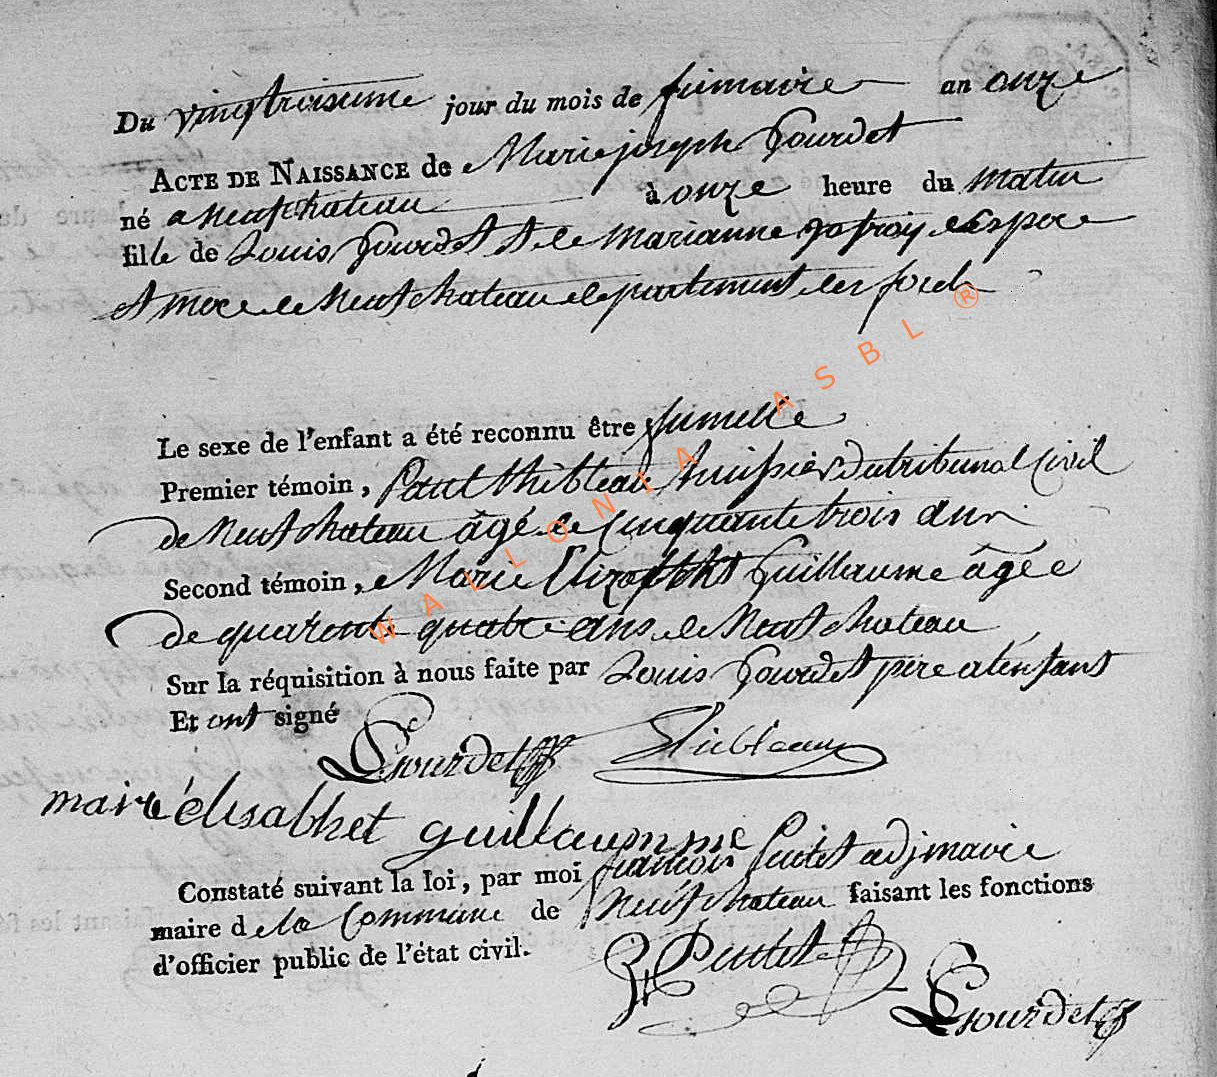 Du vingtroisieme jour du mois de frimaire an onze
ACTE DE NAISSANCE de Marie joseph Gourdet
né a neufchateau à onze heure du matin
fille de Louis Gourdet & de marianne epoux
de Neufchateau departement des forets
Le sexe de l'enfant a été reconnu être fumelle
Premier témoin, Paul thibleau huissier du tribunal Civil
de Neufchateau âgé de Cinquante trois ans
Second témoin, Marie Guillaume âgée
de quarente quatre ans de Neufchateau
Sur la réquisition à nous faite par Louis Gourdet père
Et ont signé
LGourdet Thibleau
marie élisabhet guillaumme
Constaté suivant la loi, par moi francois adj maire
maire de la Commune de Neufchateau faisant les fonctions
d'officier public de l'état civil.
LGourdet
WALLONIA ASBL ®